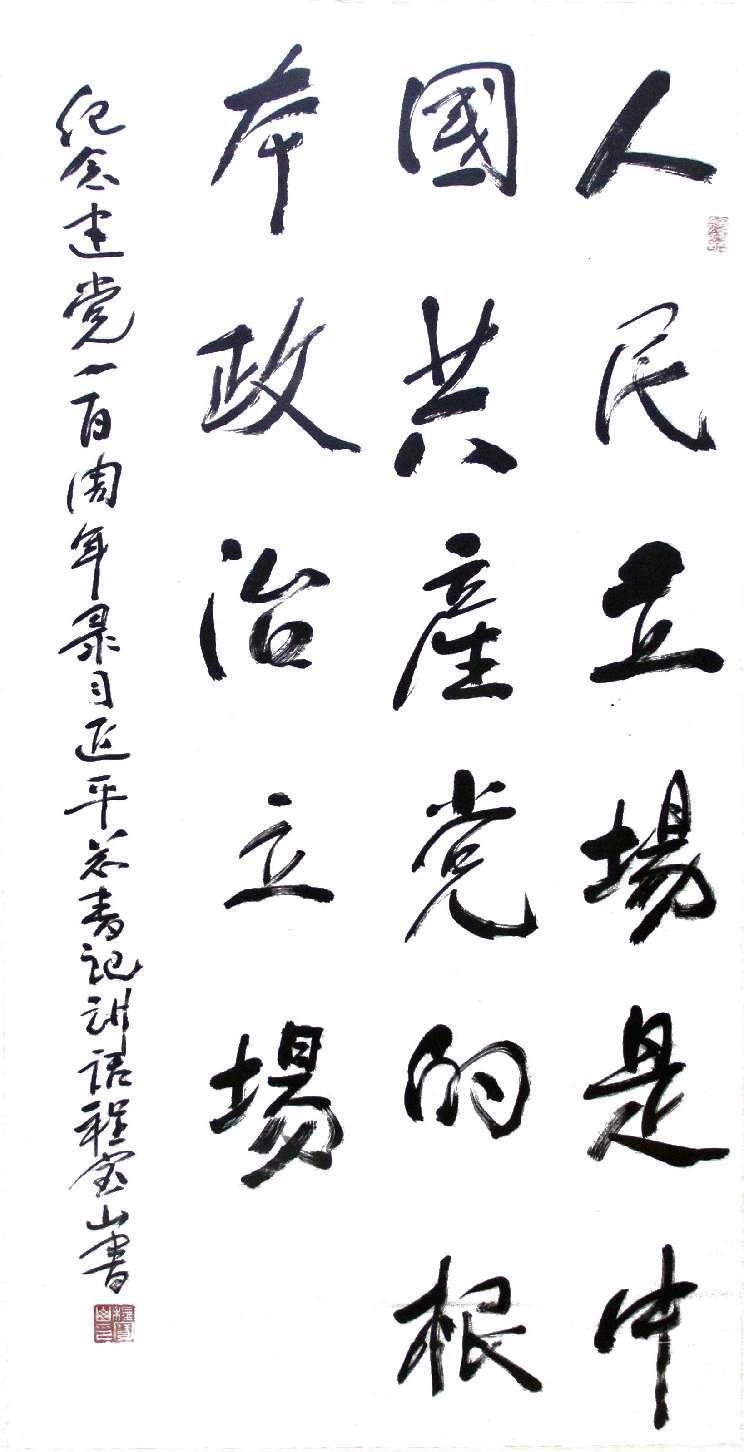 人民立場是中
國共產党的根
本政治立場
纪念建党一百周年录习近平总书记讲话程宝山书